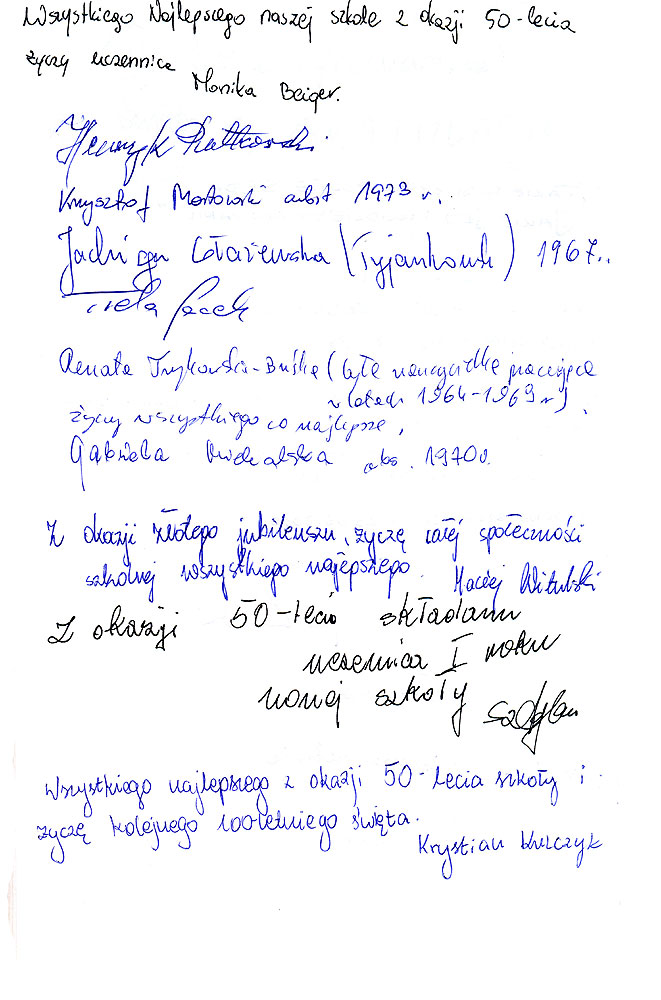 Wszystkiego Najlepszego naszej szkole z okazji 50-lecia
życzy uczennica
Monika Beiger.
Henryk
Krzysztof abs. 1973 r.
Jadwiga 1967r.
Renata (była nauczycielka pracująca
w latach 1964-1969 r.)
życzy wszystkiego co najlepsze,
Gabriela abs. 1970r.
Z okazji złotego jubileuszu, życzę całej społeczności
szkolnej wszystkiego najlepszego. Maciej Witulski
Z okazji 50-lecia składam
uczennica I roku
nowej szkoły
Wszystkiego najlepszego z okazji 50-lecia szkoły i
życzę kolejnego 100-letniego święta.
Krystian Kulczyk